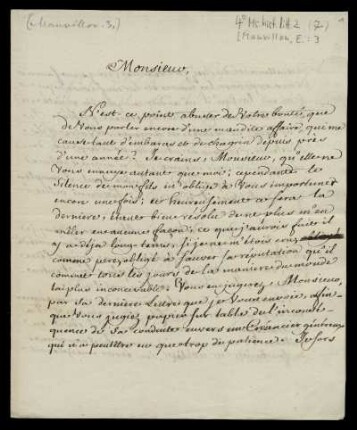 (Mauvillon. 3.)
4° Ms. hist. litt. 2 (7)
[Mauvillon, E.: 3
Monsieur,
N'est-ce point abuser de Votre bonté, que
de Vous parler encore d'une maudite affaire, que me
cause tant d'embaras et de chagrin depuis près
d'une année? Je crains, Monsieur, qu'elle ne
Vous ennuye autant que moi; cependant le
Silence de mon fils m'oblige à Vous importuner
encore une fois; et heureusement ce sera la
derniere; étant bien resolu de ne plus m'en
mêler en aucune façon; ce que j'aurois fait il
y a déja long-tems, si je ne m'étois cru
comme pere, obligé à sauver sa reputation qu'il
commet tous les jours de la maniere du monde
la plus inconcevable. Vous en jugerez, Monsieur,
par sa derniere Lettre que je Vous envoie, afin
que Vous jugiez par la de l'inconsé-
quence de sa conduite envers un Créancier généreux
qui n'a peutêtre eu que trop de patience. Je fors